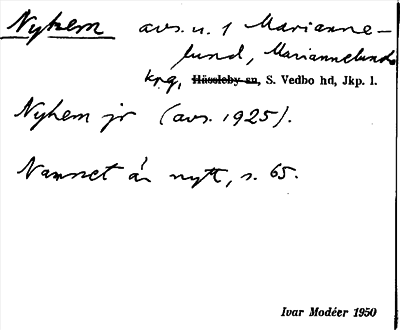 Nyhem avs. u. 1 Marianne-
lund, Mariannelunds
krg, Hässleby sn, S. Vedbo hd, Jkp. l.
Nyhem jr (avs. 1925).
Namnet är nytt, s. 65.
Ivar Modéer 1950